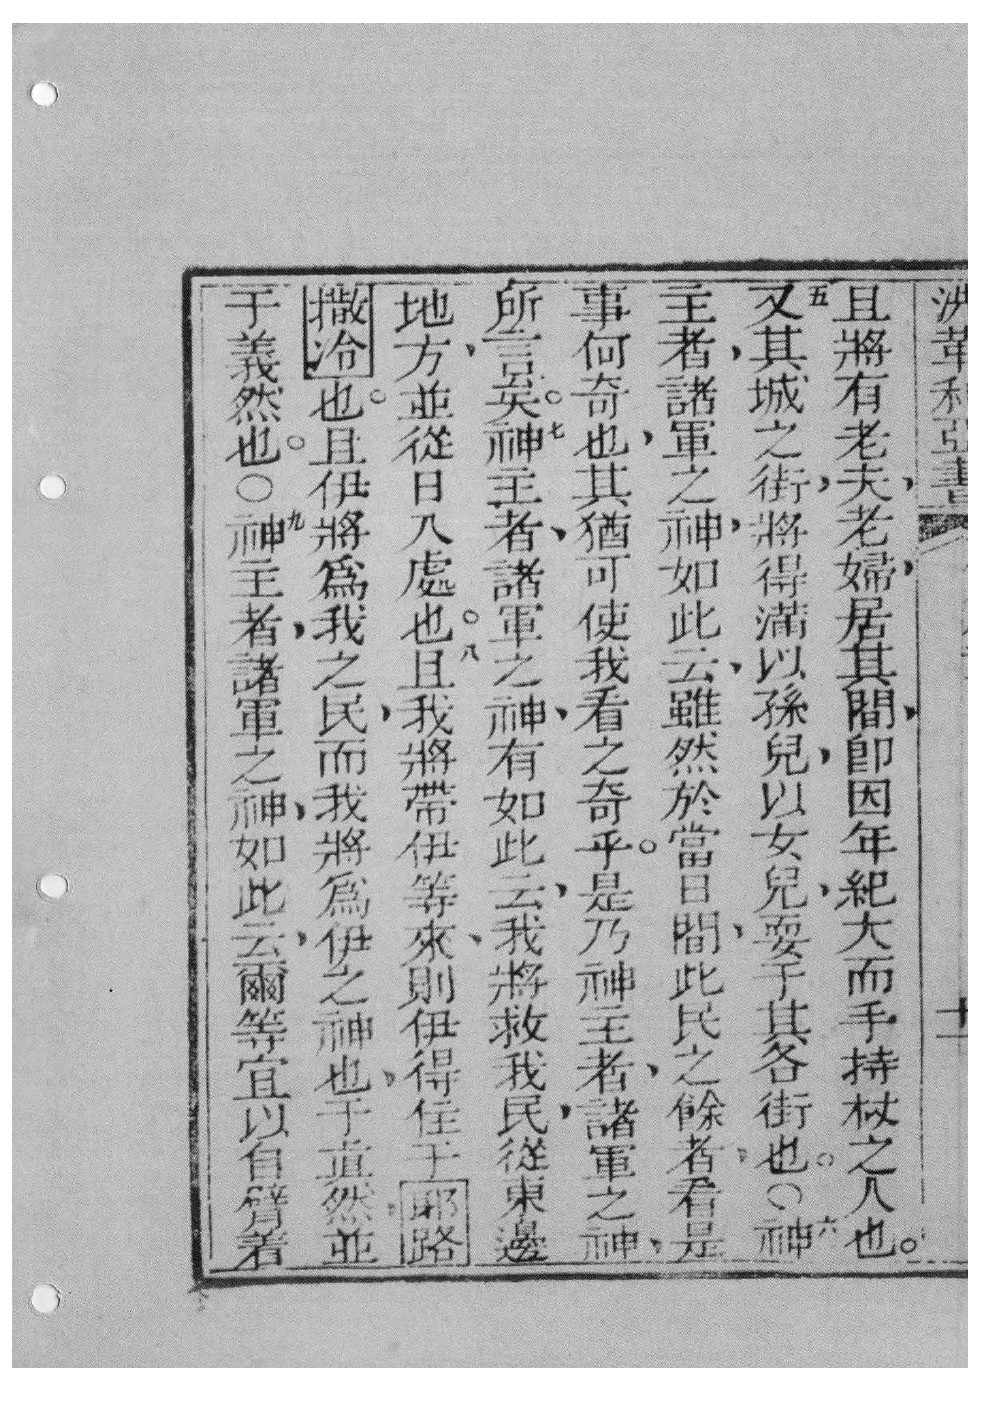 書
十一
且將有老夫，老婦，居其間，卽因年紀大而手持杖之人也。
五又其城之街，將得滿以孫兒，以女兒，耍于其各街也。○六神
主者，諸軍之神，如此云，雖然於當日間，此民之餘者，看是
事何奇也，其猶可使我看之奇乎。是乃神主者，諸軍之神，
所言矣。七神主者，諸軍之神，有如此云，我將救我民，從東邊
地方，並從日入處也。八且我將帶伊等來，則伊得住于耶路
撒冷也。且伊將爲我之民，而我將爲伊之神也，于直然，並
于義然也。○九神主者，諸軍之神，如此云，爾等宜以自臂着